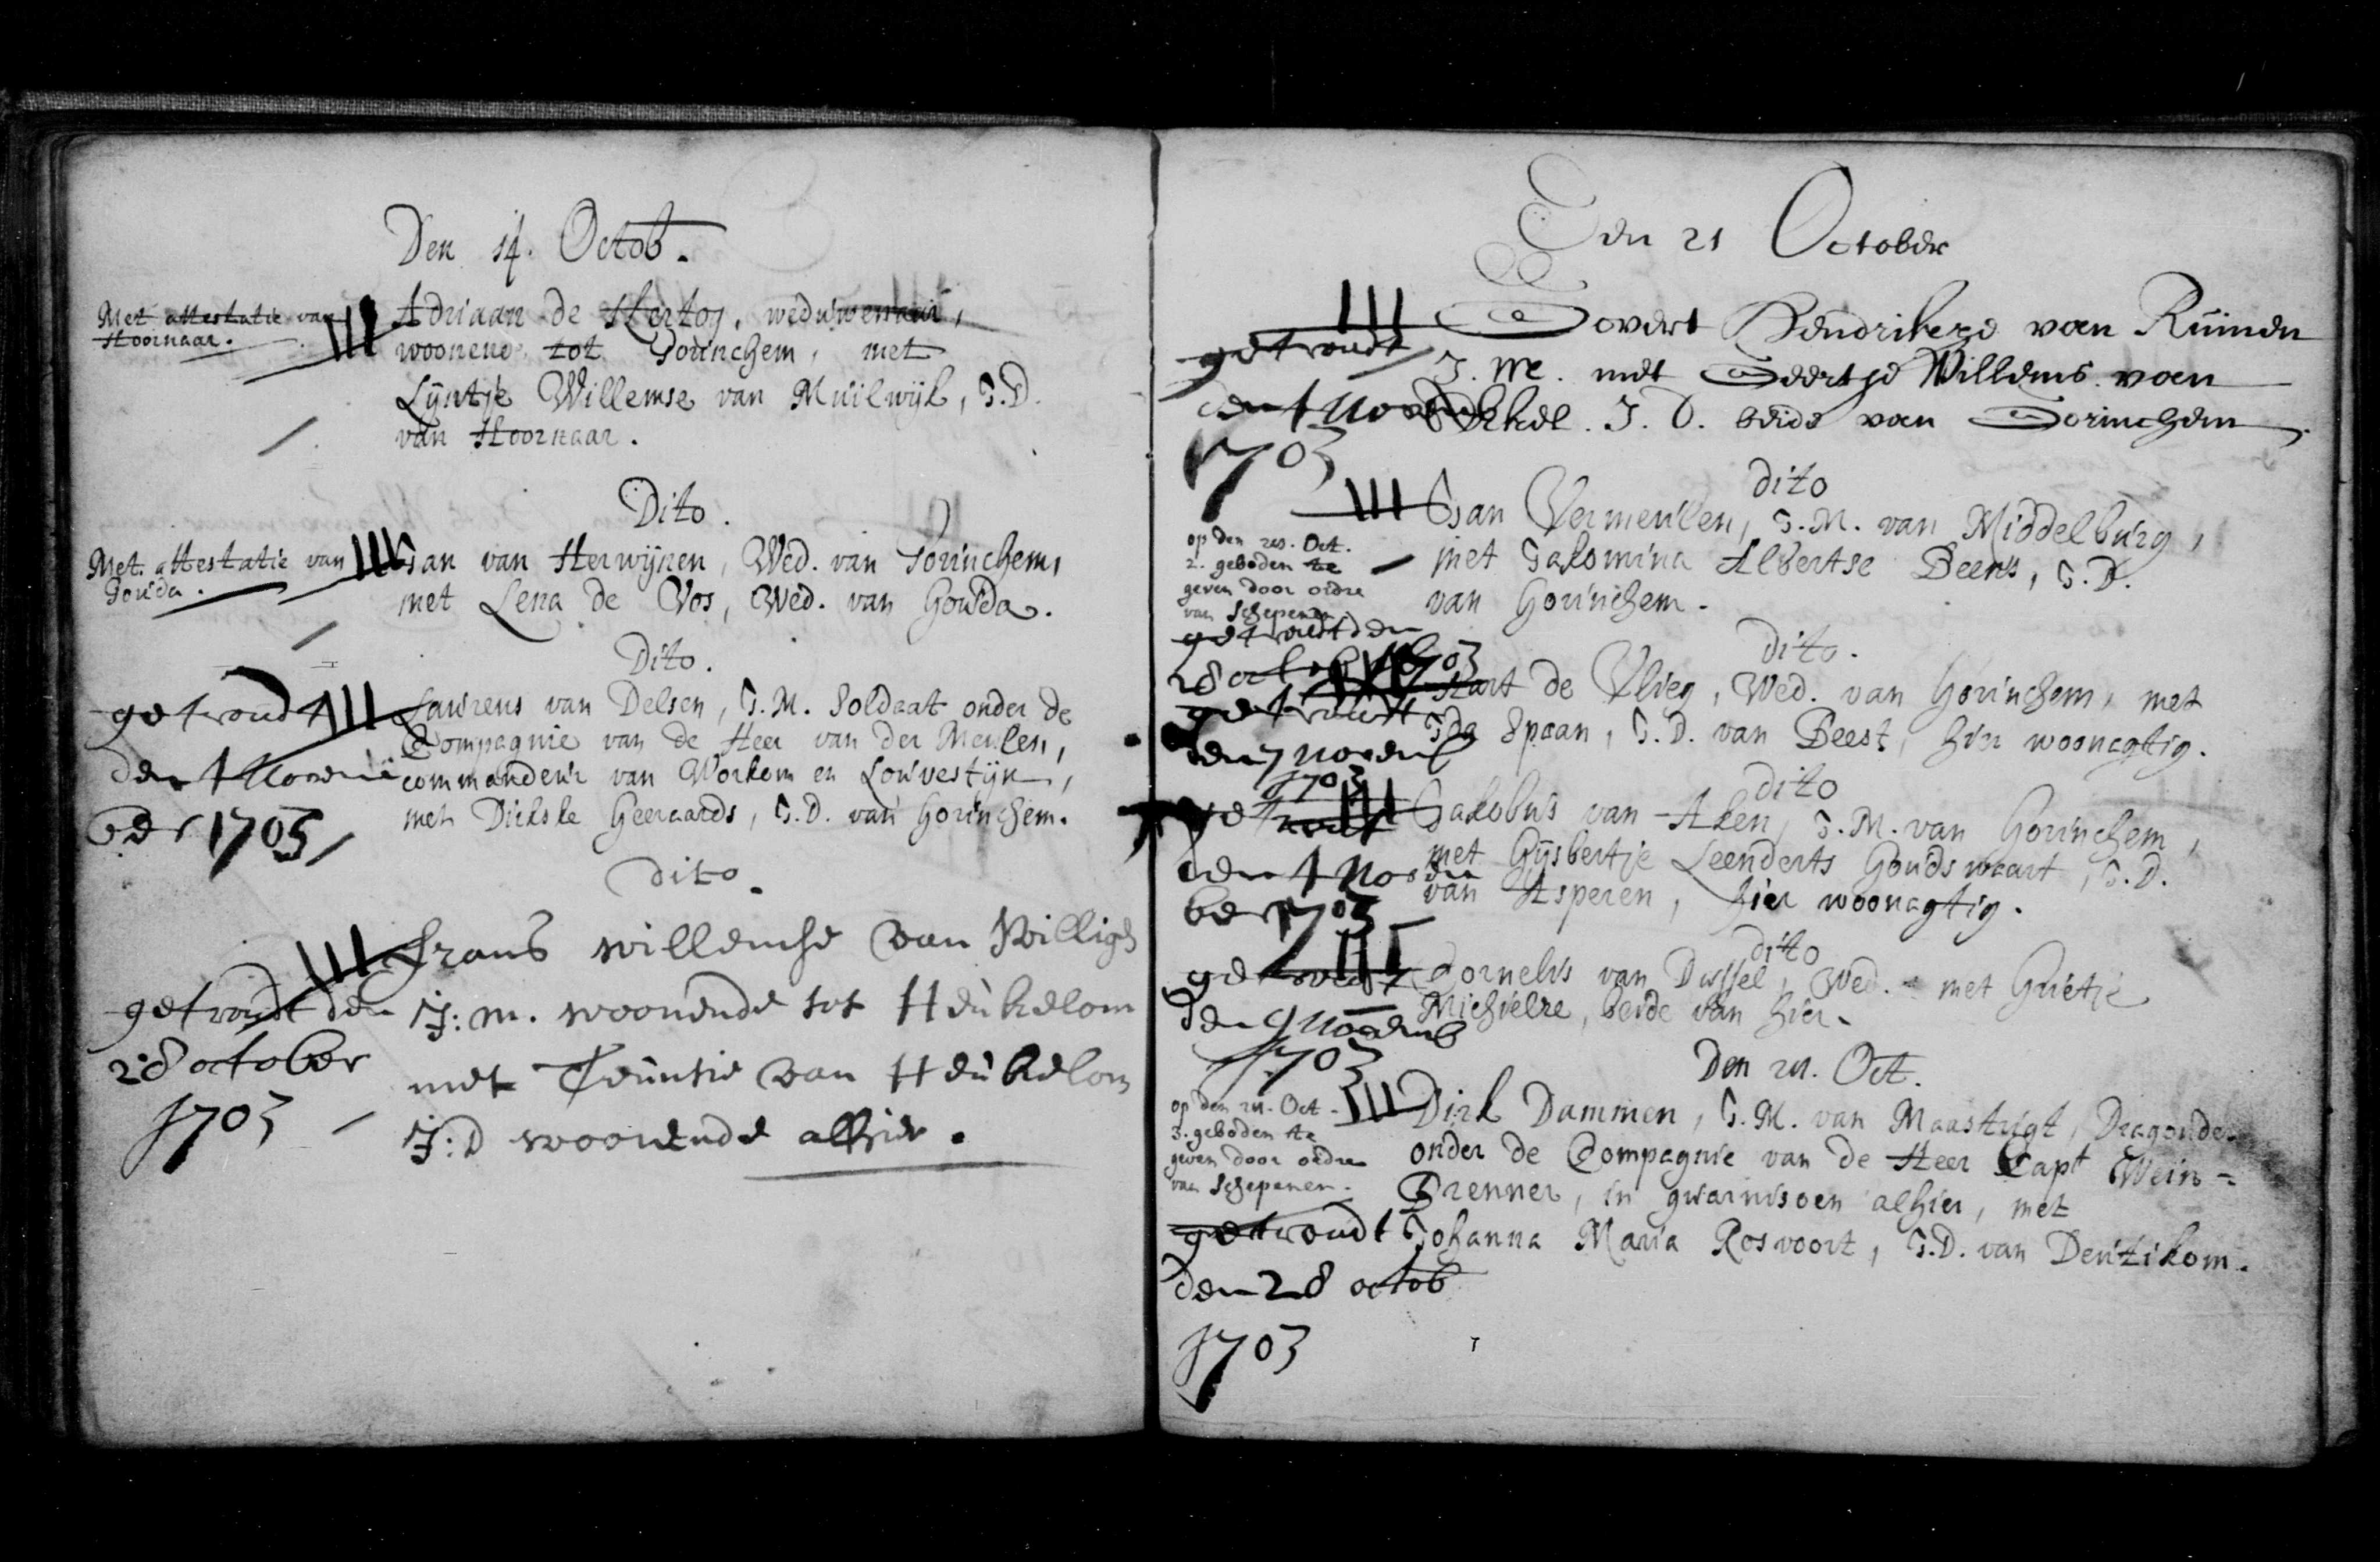 Den 14. Octob.
Met attestatie van
Hoornaar.
Adriaan de Hertog, weduwenaar,
woonend tot Gorinchem, met
Lijntje Willemse van Muilwijk, J.D.
van Hoornaar.
Dito.
Met attestatie van
Gouda.
Jan van Herwijnen, Wed. van Gorinchem,
met Lena de Vos, Wed. van Gouda.
Dito.
getroudt
den 1 Novem
ber 1703
Laurens van Delsen, J.M. Soldaat onder de
Compagnie van de Heer van der Meulen,
commandeur van Workom en Louvestijn,
met Dirkske Geeraards, J.D. van Gorinchem.
dito.
getroudt den
28 october
1703
frans willemse van Willigh
J:m. woonende tot Heukelom
met Teuntie van Heukelom
J:D woonende alhier.
Den 21 October
getroudt
den 1 Novemb
1703
Govert Hendrikeze van Ruimen
J. M. met Geertje Willems van
J. D. beide van Gorinchem.
dito
op den 20. Oct.
2. geboden te
geven door ordre
van Schepenen
getroudt den
28 octob 1703
Jan Vermeulen, J.M. van Middelburg,
met Jakomina Albertse Beens, J.D.
van Gorinchem.
dito.
getroudt
den 7 novemb
1703
Hart de Vlieg, Wed. van Gorinchem, met
Ida Spaan, J.D. van Beest, hier woonagtig.
dito
getroudt
den 1 Novem
ber 1703
Jakobus van Aken, J.M. van Gorinchem,
met Gijsbertje Leenderts Goudswaart, J.D.
van Asperen, hier woonagtig.
dito
getroudt
den 9 Novemb
1703
Cornelis van Dussel, Wed. met Grietje
Michielze, beide van hier.
Den 21. Oct.
op den 21. Oct.
3. geboden te
geven door ordre
van Schepenen.
getroudt
den 28 octob
1703
Dirk Dammen, J.M. van Maastrigt, Dragonder
onder de Compagnie van de Heer Capt Wein-
Brenner, in gwarnisoen alhier, met
Johanna Maria Rosvoort, J.D. van Deutikom.